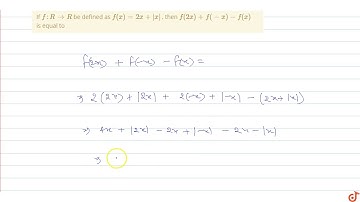 If f : R → R be defined as f(x) = 2x + |x|, then f(2x) + f(− x) − f(x)
is equal to
f(2x) + f(-x) - f(x) =
⇒ 2(2x) + |2x| + 2(-x) + |-x| - (2x + |x|)
⇒ 4x + |2x| - 2x + |-x| - 2x - |x|
⇒
doubtnut